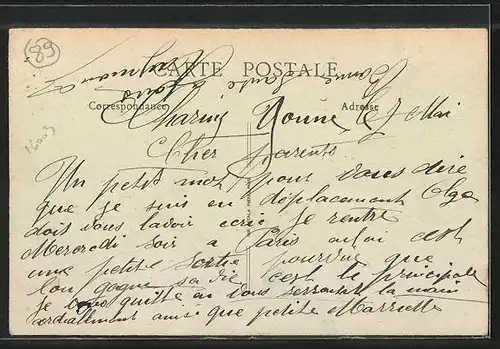 89
CARTE POSTALE
Correspondance
Adresse
16003
Bonne Santé
a tous
Charny Yonne le 7 Mai
Cher parents
Un petit mot pour vous dire
que je suis en déplacement Olga
doit vous lavoir ecrie je rentre
Mercredi soir a Paris aussi c'est
une petite sortie pourvue que
lon gagne sa vie c'est le principale
je vous quitte en vous serrant la main
cordiallement ainsi que petite Marcelle